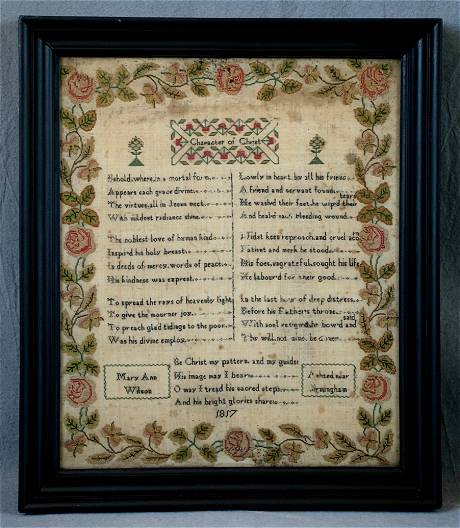 Character of Christ
Behold, where, in a mortal form
Appears each grace divine
The virtues, all in Jesus met
With mildest radiance shine
The noblest love of human kind
Inspir'd his holy breast
In deeds of mercy, words of peace
His kindness was exprest
To spread the rays of heavenly light
To give the mourner joy
To preach glad tidings to the poor
Was his divine employ
Lowly in heart, by all his friends
A friend and servant found
He washed their feet, he wip'd their tears
And heal'd each bleeding wound
Midst keen reproach, and cruel scorn
Patient and meek he stood
His foes, ungrateful, sought his life
He labour'd for their good
In the last hour of deep distress
Before his Father's throne
With soul resign'd he bow'd and said
Thy will, not mine, be done
Be Christ my pattern, and my guide
His image may I bear
O may I tread his sacred steps
And his bright glories share
Mary Ann
Wilson
Ashted near
Birmingham
1817